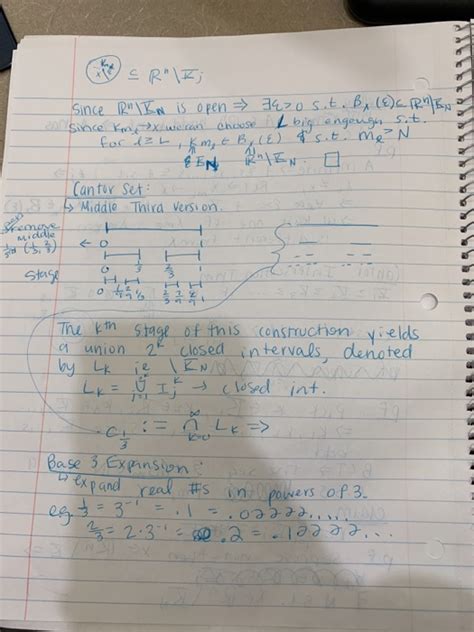 ⊆ ℝⁿ\K_j
Since ℝⁿ\K_N is open ⇒ ∃ε>0 s.t. B_x(ε) ⊆ ℝⁿ\K_N
Since k_mℓ → x we can choose L big engough s.t.
for ℓ ≥ L, k_mℓ ∈ B_x(ε) & s.t. m_ℓ > N
∈ K_N ℝⁿ\K_N. □
Cantor Set:
↳ Middle Third Version.
remove
middle
(1/3, 2/3)
← 0 1
0 1/3 2/3 1
stage
0 1/9 2/9 1/3 2/3 7/9 8/9 1
The kth stage of this construction yields
a union 2^k closed intervals, denoted
by L_k ie \K_N
L_k = ∪ I_j^k → closed int.
C_1/3 := ∩_{k=0}^∞ L_k ⇒
Base 3 Expansion:
↳ expand real #s in powers of 3.
eg. 1/3 = 3⁻¹ = .1 = .02222.....
2/3 = 2·3⁻¹ = .2 = .12222...